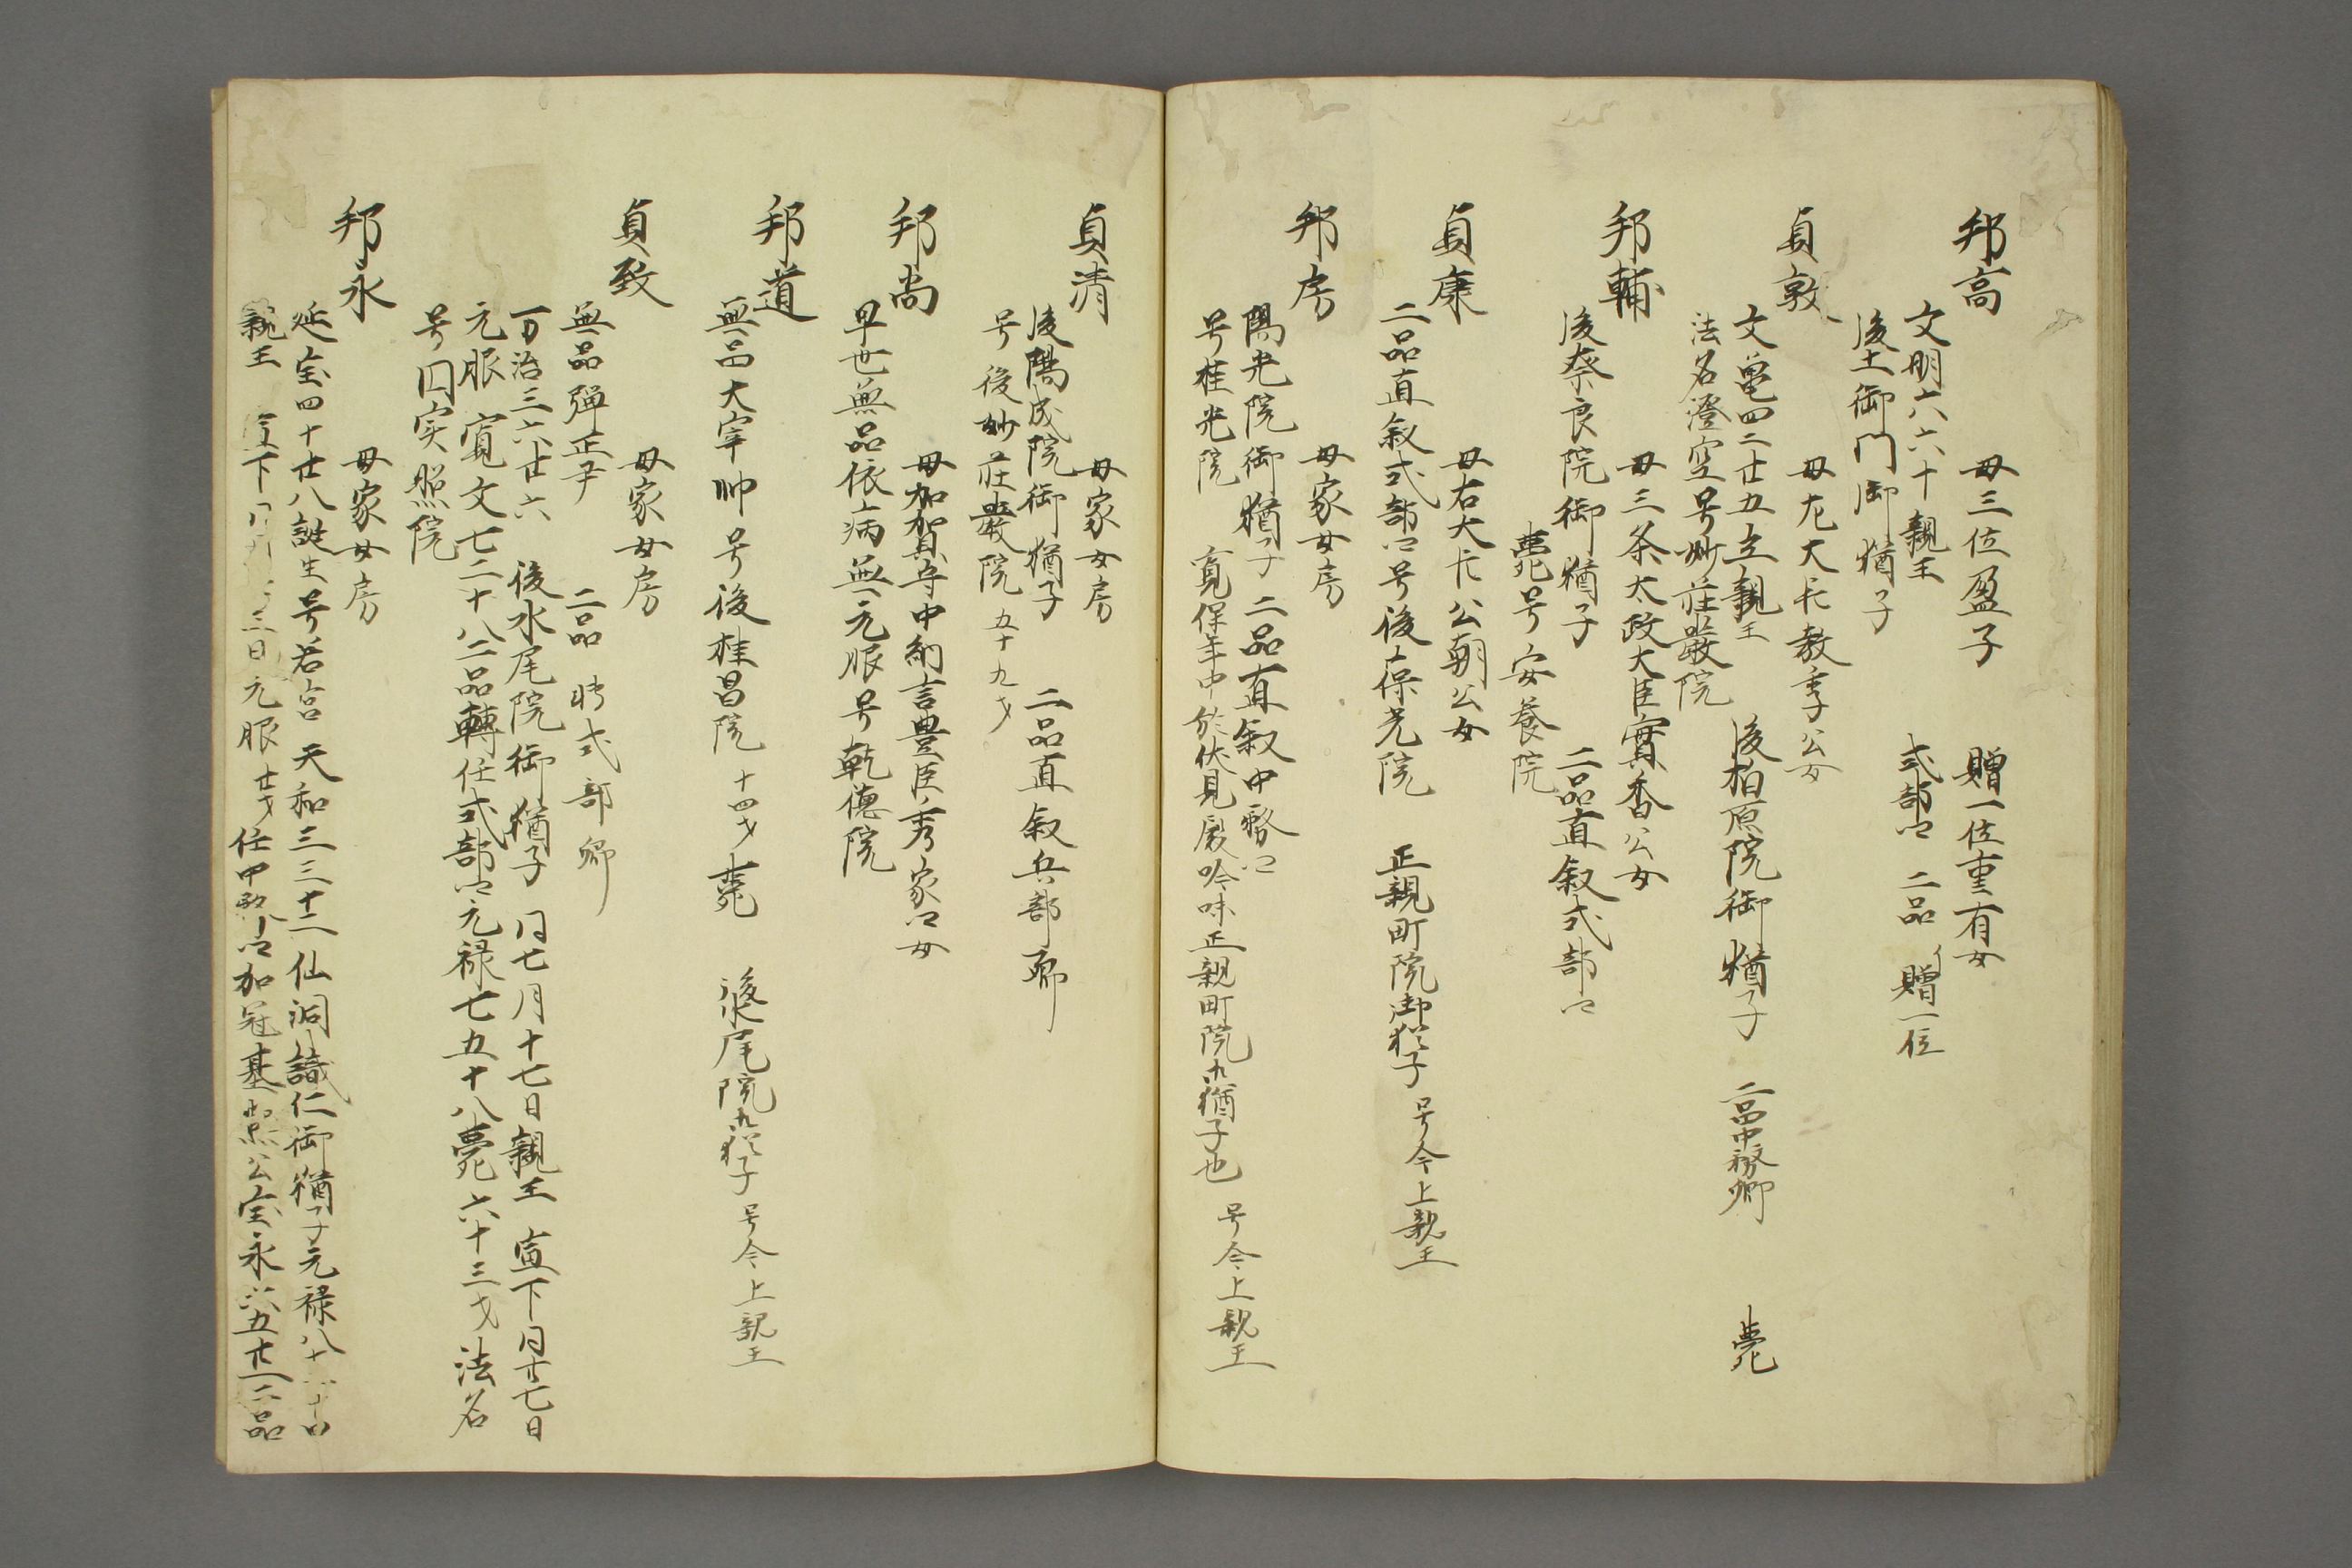 邦高
母三位盈子　贈一位重有女
文明六六十親王　式部卿　二品　贈一位
後土御門御猶子
貞敦
母左大臣教季公女
文亀四二廿五立親王　後柏原院御猶子　二品中務卿　薨
法名澄空号妙荘厳院
邦輔
母三条太政大臣實香公女
後奈良院御猶子　二品直叙式部卿
薨号安養院
貞康
母右大臣公朝公女
二品直叙式部卿号後葆光院　正親町院御猶子　号今上親王
邦房
母家女房
陽光院御猶子　二品直叙中務卿
号桂光院　寛保年中於伏見殿吟味正親町院御猶子也　号今上親王
貞清
母家女房
後陽成院御猶子　二品直叙兵部卿
号後妙荘厳院　五十九才
邦尚
母加賀守中納言豊臣秀家卿女
早世無品依病無元服号乾徳院
邦道
無品大宰帥　号後桂昌院　十四才薨　後水尾院御猶子　号今上親王
貞致
母家女房
無品弾正尹　二品　転式部卿
万治三六廿六　後水尾院御猶子　同七月十七日親王　宣下同廿七日
元服　寛文七二十八二品轉任式部卿元禄七五十八薨　六十三才　法名
号円実照院
邦永
母家女房
延宝四十廿八誕生号若宮　天和三三十二仙洞識仁御猶子元禄八十
親王　宣下　三日元服　廿才　任中務卿加冠基凞公宝永六五廿一二品